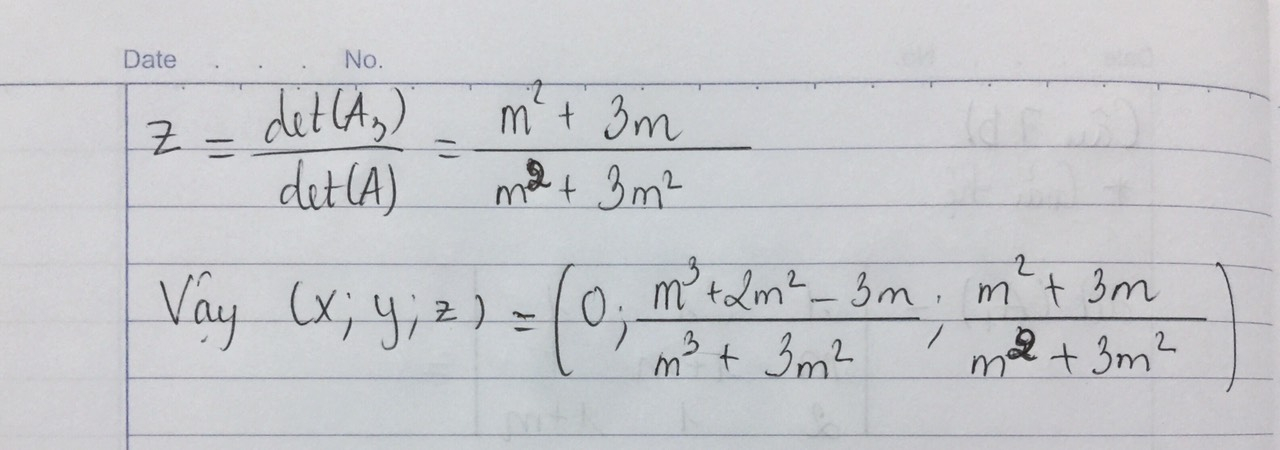 Date . . . No.
z = det(A₃)/det(A) = (m² + 3m)/(m² + 3m²)
Vậy (x; y; z) = (0; (m³ + 2m² - 3m)/(m³ + 3m²); (m² + 3m)/(m² + 3m²))